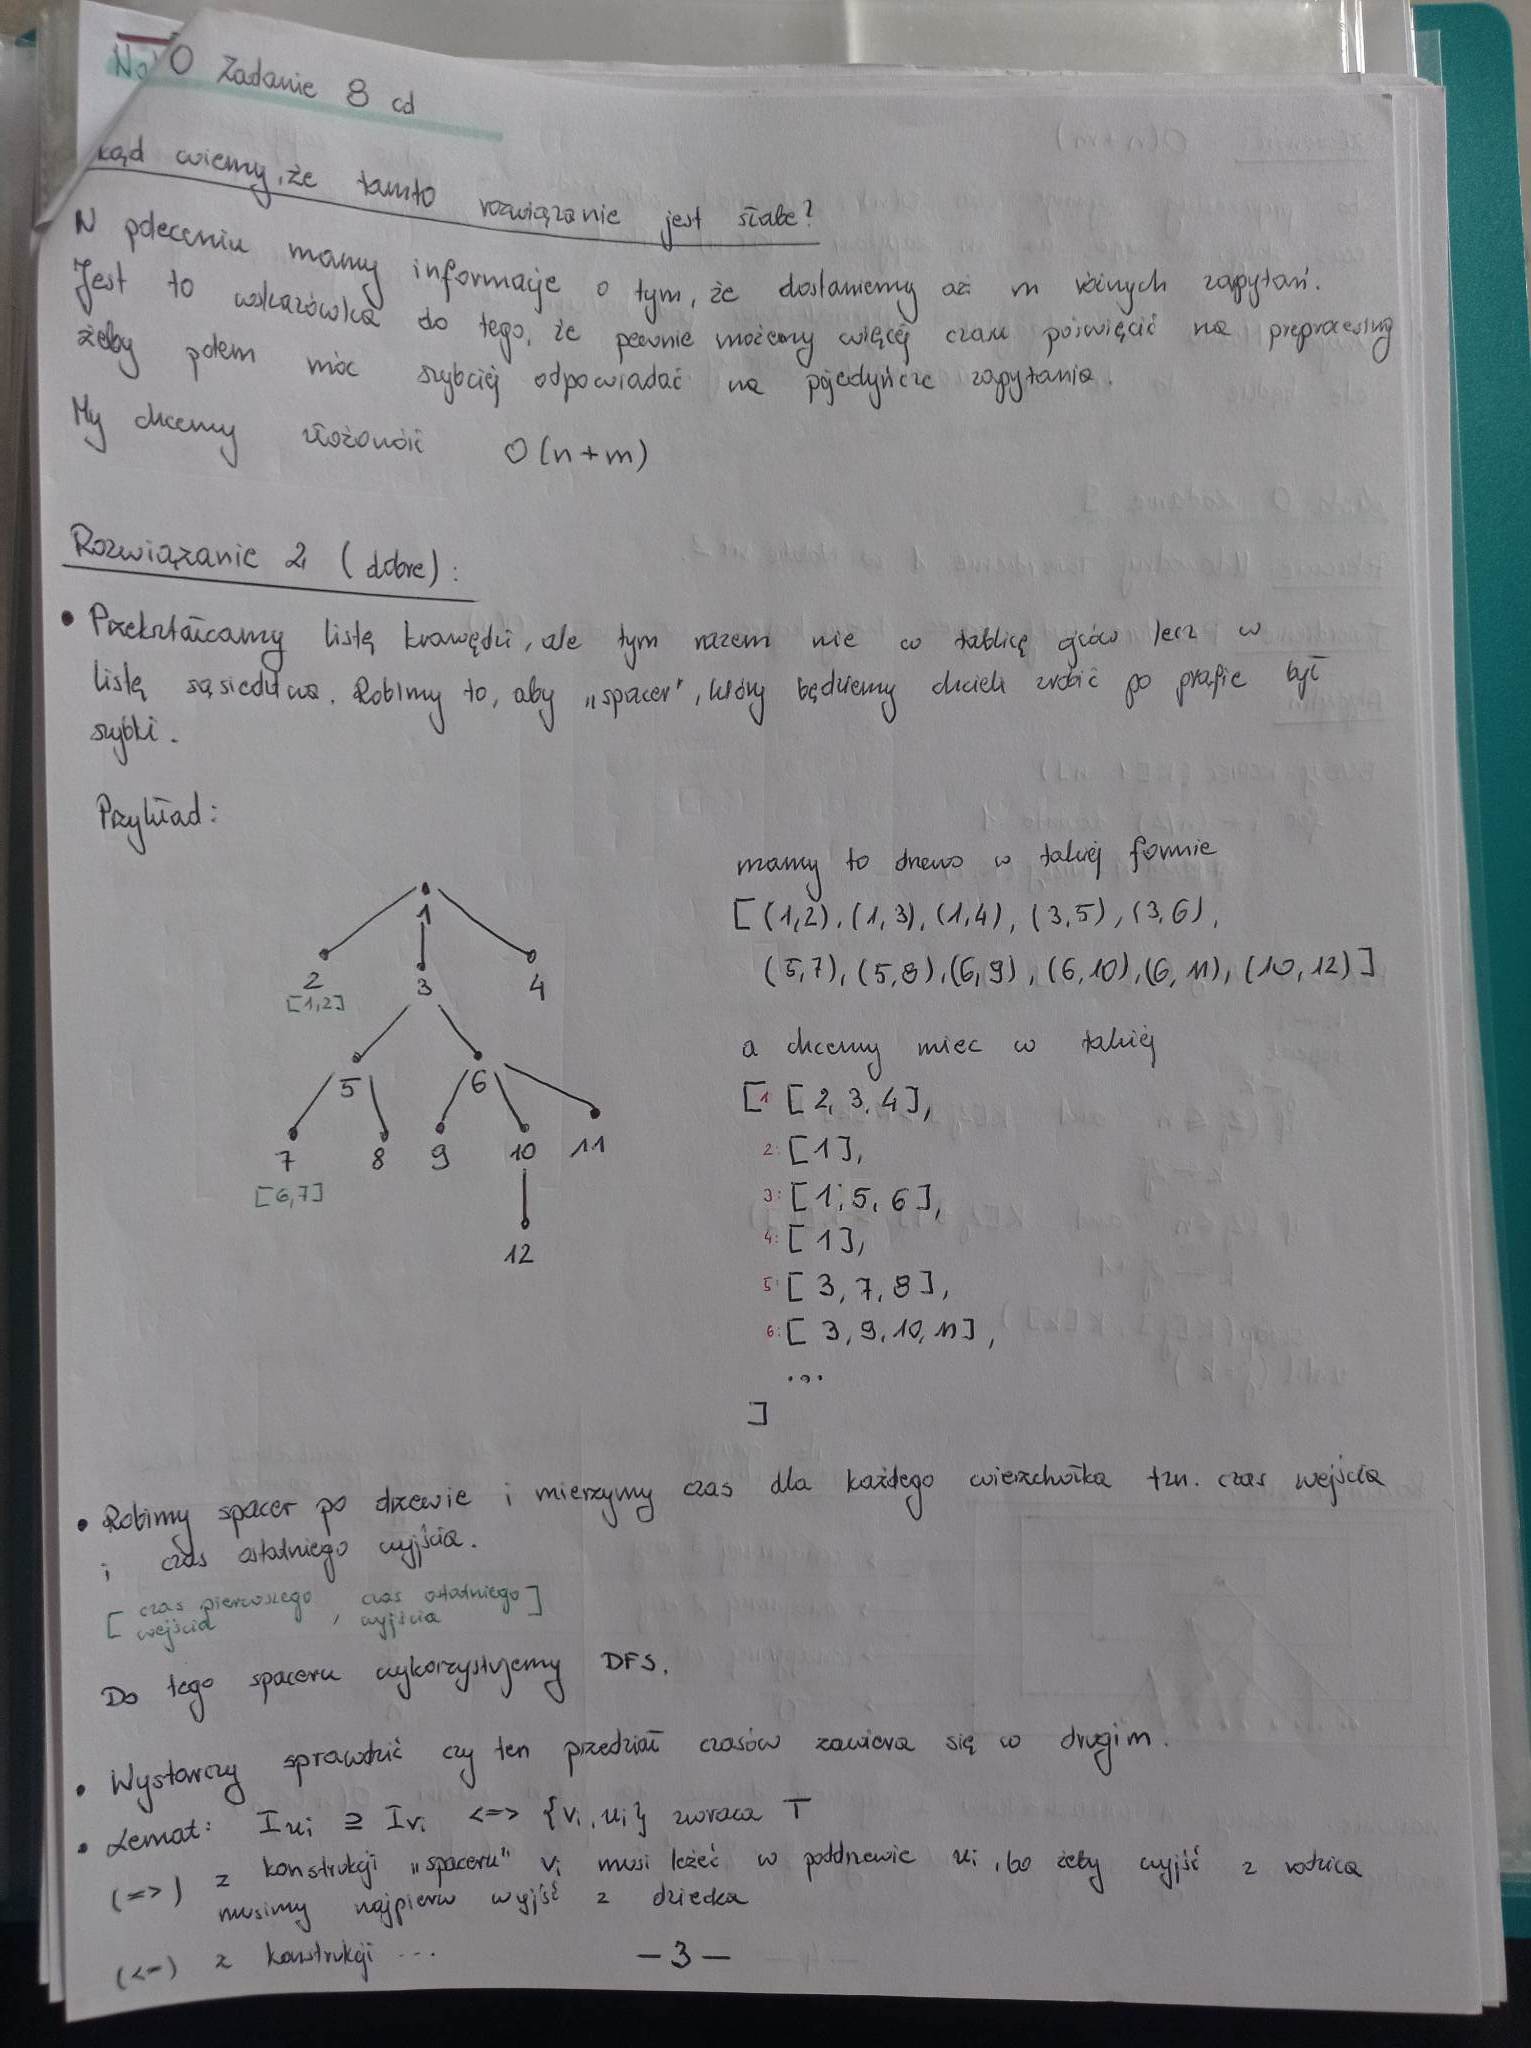 0 Zadanie 8 cd
kąd wiemy, że tamto rozwiązanie jest słabe?
W poleceniu mamy informacje o tym, że dostaniemy aż m różnych zapytań.
Jest to wskazówka do tego, że pewnie możemy więcej czasu poświęcić na preprocesing
żeby potem móc szybciej odpowiadać na pojedyńcze zapytania.
My chcemy złożoność O(n+m)
Rozwiązanie 2 (dobre):
• Przekształcamy listę krawędzi, ale tym razem nie w tablicę ojców lecz w
listę sąsiedztwa. Robimy to, aby „spacer", który będziemy chcieli zrobić po grafie był
szybki.
Przykład:
mamy to drzewo w takiej formie
[(1,2), (1,3), (1,4), (3,5), (3,6),
(5,7), (5,8), (6,9), (6,10), (6,11), (10,12)]
a chcemy miec w takiej
[ 1 [2, 3, 4],
2: [1],
3: [1, 5, 6],
4: [1],
5: [3, 7, 8],
6: [3, 9, 10, 11],
...
]
1
2 3 4
[1,2]
5 6
7 8 9 10 11
[6,7]
12
• Robimy spacer po drzewie i mierzymy czas dla każdego wierzchołka tzn. czas wejścia
i czas ostatniego wyjścia.
[ czas pierwszego wejścia , czas ostatniego wyjścia ]
Do tego spaceru wykorzystujemy DFS.
• Wystarczy sprawdzić czy ten przedział czasów zawiera się w drugim.
• Lemat: Iui ⊇ Ivi <=> {vi, ui} zwraca T
(=>) z konstrukcji „spaceru" vi musi leżeć w poddrzewie ui, bo żeby wyjść z rodzica
musimy najpierw wyjść z dziecka
(<=) z konstrukcji ...
– 3 –